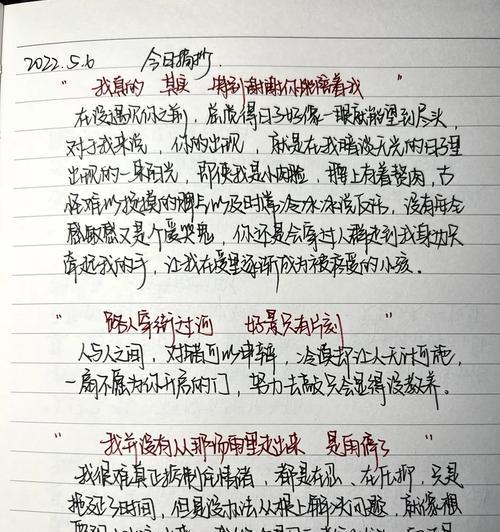 2022.5.6 今日摘抄.
" 我真的 其实 特别谢谢你能陪着我 "
在没遇见你之前,总觉得日子好像一眼就能望到尽头,
对于我来说,你的出现,就是在我暗淡无光的日子里
出现的一束阳光,即使我是小肉脸,腰上有着赘肉,古
怪难以捉摸的脾气以及时常冷冰冰说反话,没有安全
感敏感又是个爱哭鬼,你还是会穿过人群走到我身边
牵起我的手,让我在爱里逐渐成为被疼爱的小孩。
" 路人穿街过河 好景只有片刻 "
人与人之间,对错可以争辩,冷漠却让人无计可施,
一扇不愿为你开启的门,努力去敲只会显得没教养。
" 我并没有从那场雨里走出来 是雨停了 "
我很难真正控制住情绪,都是在忍、在压抑,只是
拖延了时间,但是没办法从根上解决问题,就像想